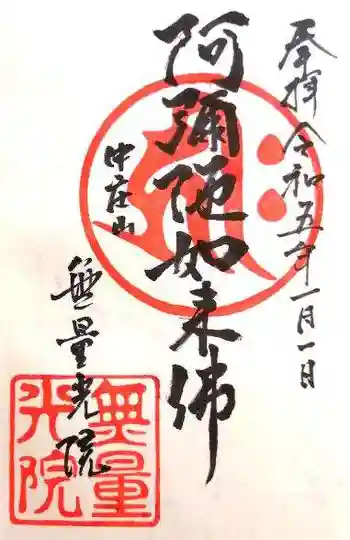 奉拝 令和五年一月一日
阿彌陀如来佛
中庄山
無量光院
無量
光院